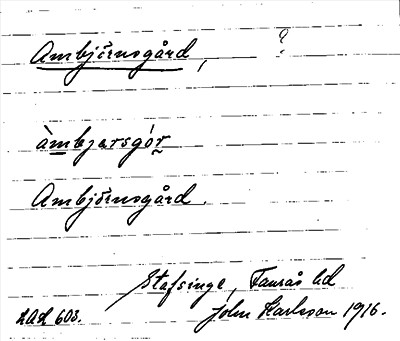 Ambjörnsgård, ?
àmbjarsgór
Ambjörnsgård.
Stafsinge, Faurås hd
John Karlsson 1916.
603.